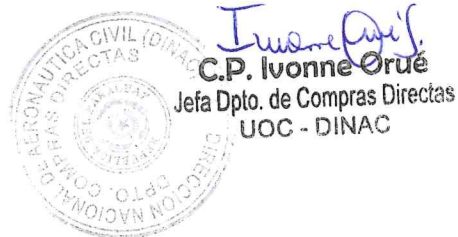 C.P. Ivonne Orué
Jefa Dpto. de Compras Directas
UOC - DINAC
DIRECCION NACIONAL DE AERONAUTICA CIVIL (DINAC)
DPTO. COMPRAS DIRECTAS